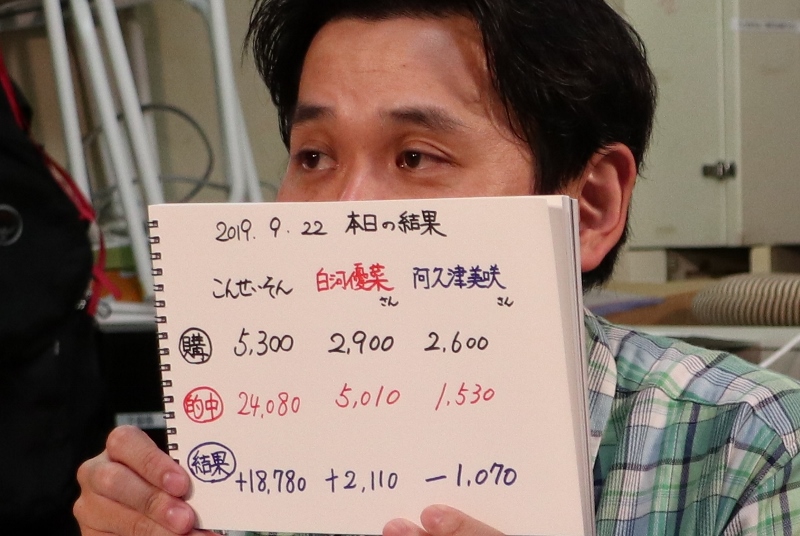 2019. 9. 22 本日の結果
こんせいそん 白河優菜さん 阿久津美咲さん
購 5,300 2,900 2,600
的中 24,080 5,010 1,530
結果 +18,780 +2,110 -1,070